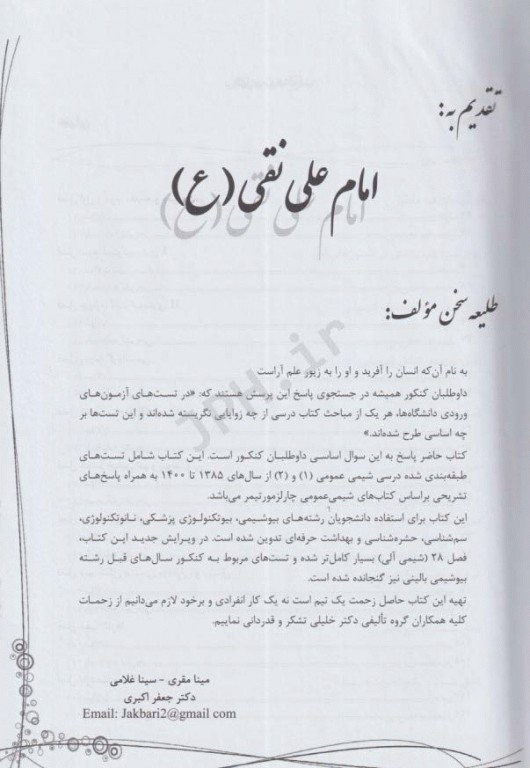 تقدیم به:
امام علی نقی (ع)
طلیعه سخن مؤلف:
به نام آن‌که انسان را آفرید و او را به زیور علم آراست
داوطلبان کنکور همیشه در جستجوی پاسخ این پرسش هستند که: «در تست‌های آزمون‌های
ورودی دانشگاه‌ها، هر یک از مباحث کتاب درسی از چه زوایایی نگریسته شده‌اند و این تست‌ها بر
چه اساسی طرح شده‌اند.»
کتاب حاضر پاسخ به این سوال اساسی داوطلبان کنکور است. این کتاب شامل تست‌های
طبقه‌بندی شده درسی شیمی عمومی (۱) و (۲) از سال‌های ۱۳۸۵ تا ۱۴۰۰ به همراه پاسخ‌های
تشریحی براساس کتاب‌های شیمی‌عمومی چارلزمورتیمر می‌باشد.
این کتاب برای استفاده دانشجویان رشته‌های بیوشیمی، بیوتکنولوژی پزشکی، نانوتکنولوژی،
سم‌شناسی، حشره‌شناسی و بهداشت حرفه‌ای تدوین شده است. در ویرایش جدید این کتاب،
فصل ۲۸ (شیمی آلی) بسیار کامل‌تر شده و تست‌های مربوط به کنکور سال‌های قبل رشته
بیوشیمی بالینی نیز گنجانده شده است.
تهیه این کتاب حاصل زحمت یک تیم است نه یک کار انفرادی و برخود لازم می‌دانیم از زحمات
کلیه همکاران گروه تألیفی دکتر خلیلی تشکر و قدردانی نماییم.
مینا مقری - سینا غلامی
دکتر جعفر اکبری
Email: Jakbari2@gmail com